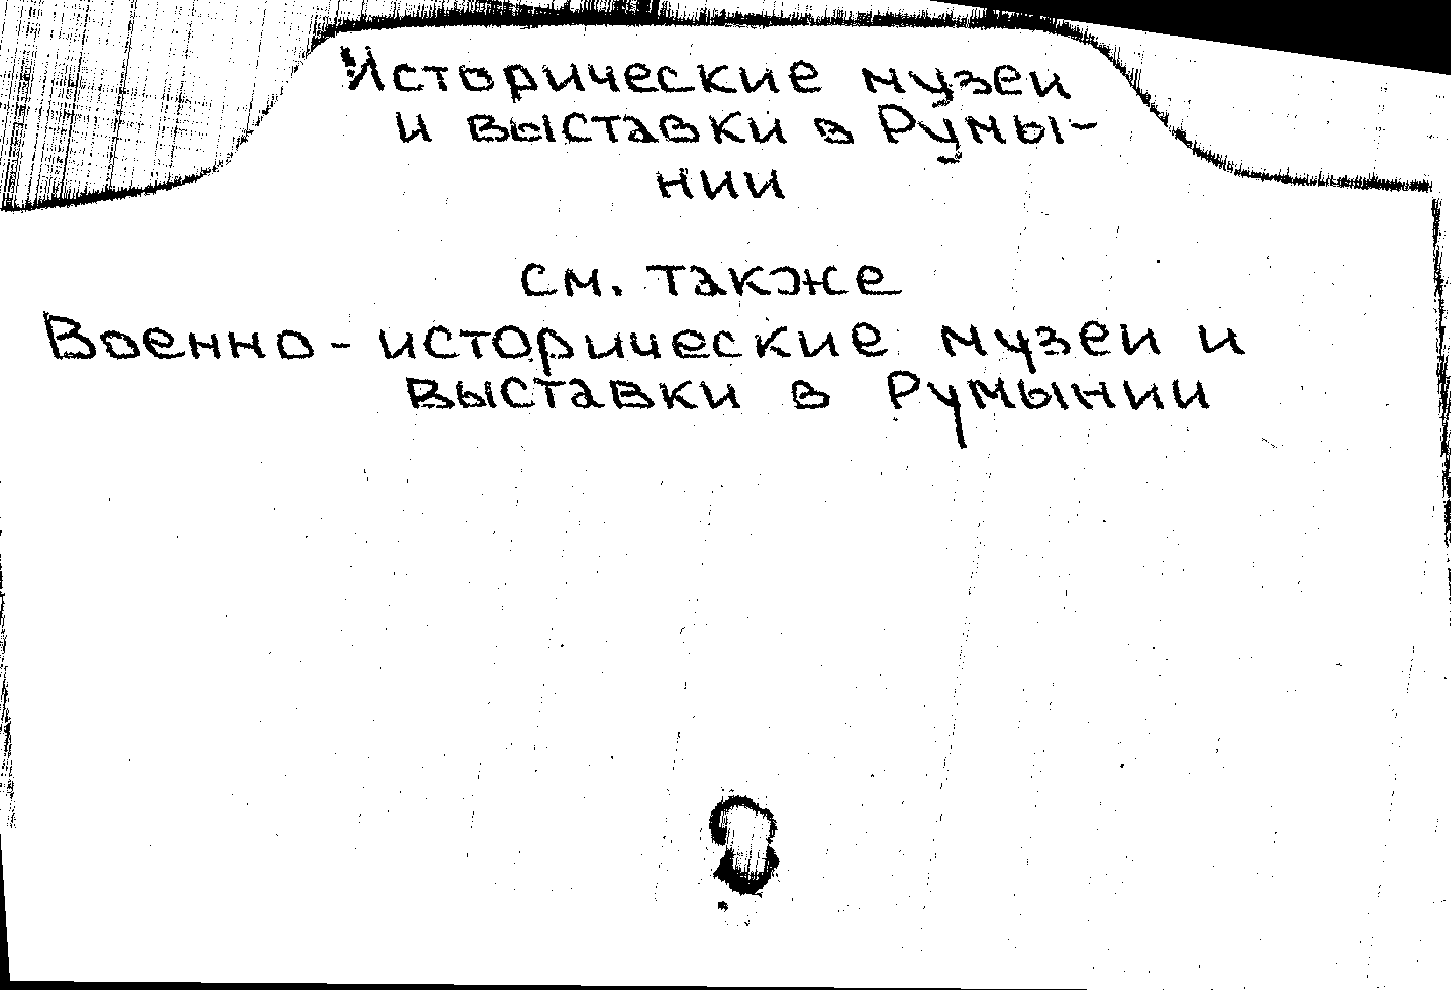 Исторические музеи
и выставки в Румы-
нии
см. также
Военно-исторические музеи и
выставки в Румынии